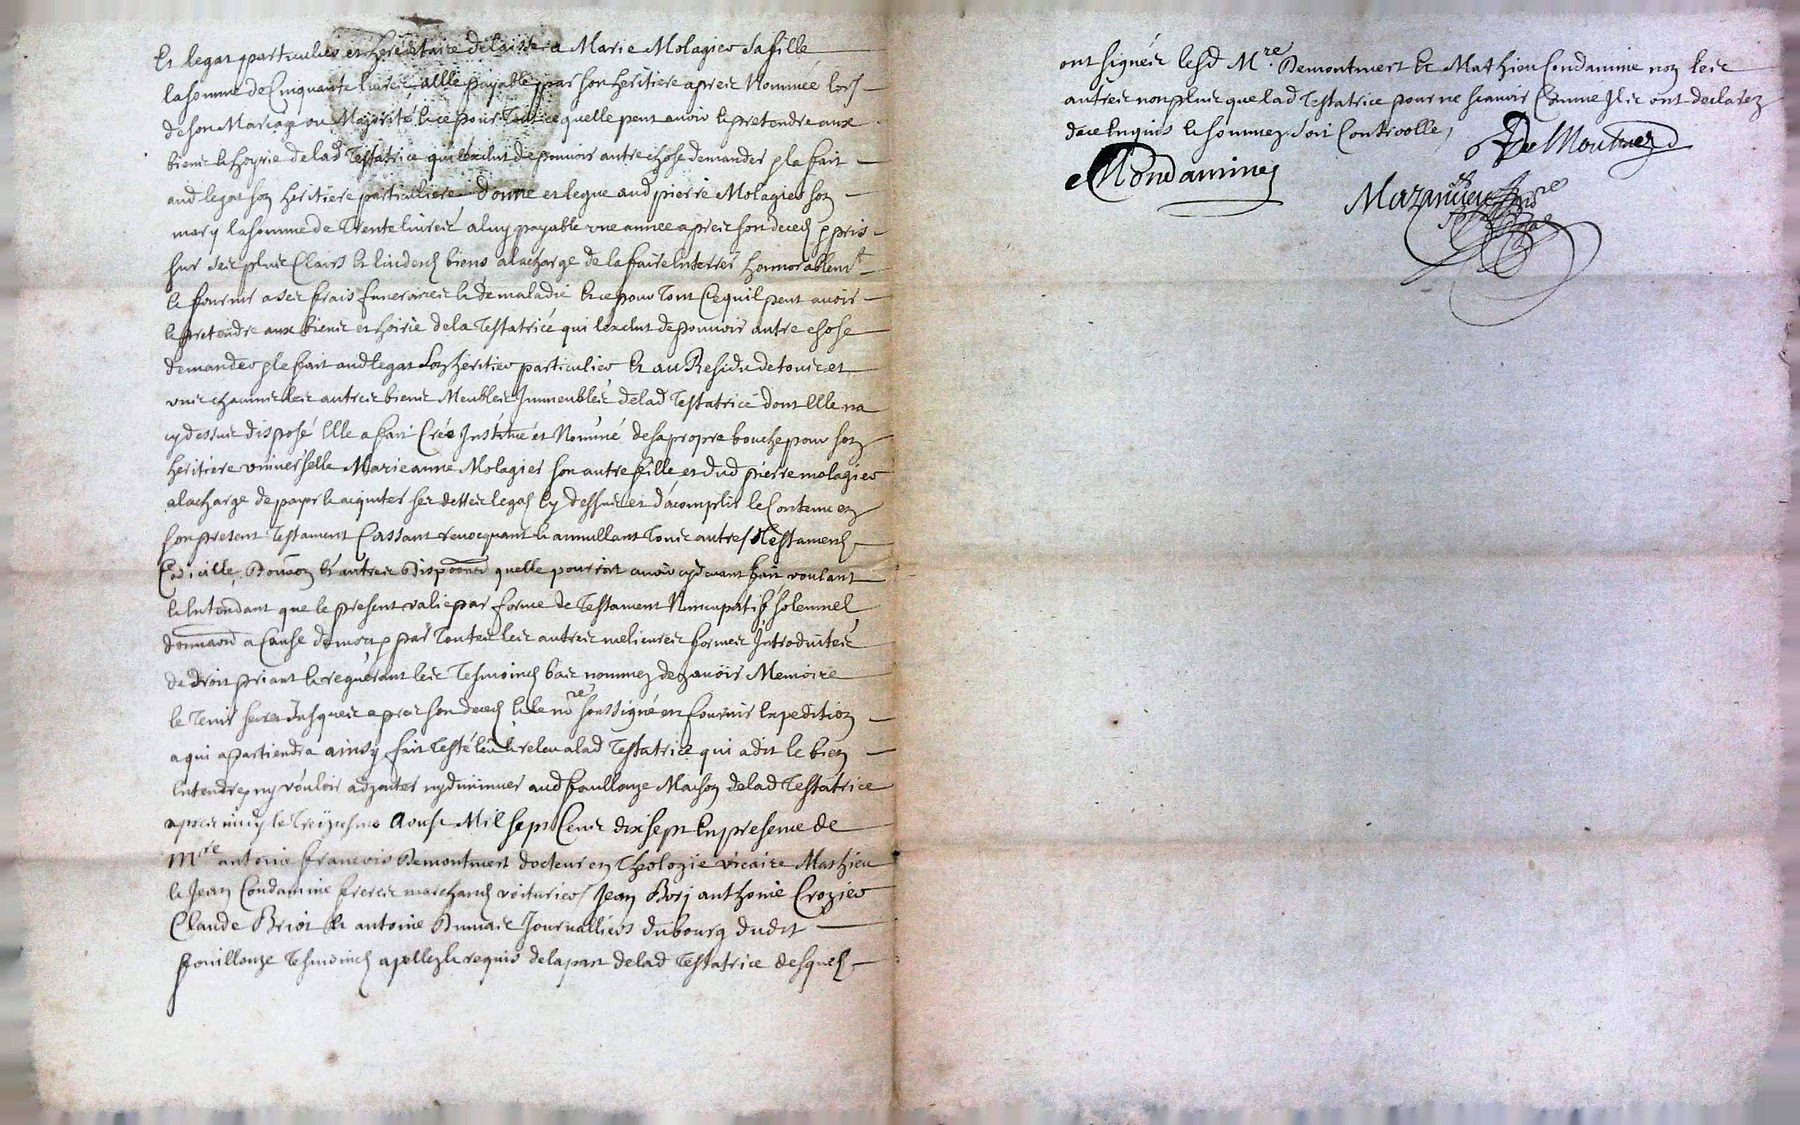 Et legat particulier et hereditaire delaisse a Marie Molagier sa fille
la somme de Cinquante livres a elle payable par son heritiere apres Nommée lors
de son Mariage ou Majorité & ce pour Tout ce quelle peut avoir & pretendre aux
biens & hoyrie de lad Testatrice qui lexclut de pouvoir autre chose demander p le fait
aud legat son heritiere particulliere donne et legue aud pierre Molagier son
mary la somme de Trente livres a luy payable une annee apres son deces p pris
sur ses plus Clairs & liudes biens a la charge de la faire Enterrer honnorablemt
& fournir a ses frais funeraires & de maladie & ce pour Tout Ce quil peut avoir
& pretendre aux biens et hoirie de la Testatrice qui lexclut de pouvoir autre chose
demander p le fait aud legat Son heritier particulier Et au Residu de tous et
uns chacuns les autres biens Meubles Immeubles de lad Testatrice dont Elle na
cy dessus disposé Elle a fait Créé Institué et Nommé de sa propre bouche pour son
heritiere universelle Marieanne Molagier son autre fille et dud pierre molagier
a la charge de payer & aquiter ses dettes legas Cy dessus et d'acomplir le Contenu en
son present Testament Cassant revocquant & annullant Tous autres Testaments
Codicille, Donaon & autres Dispoons quelle pourroit avoir cy devant fait voulant
& Entendant que le present valie par forme de Testament Nuncupatif solemnel
donnaon a Cause de mort p par Toutes les autres melieures formes Introduites
de droit priant & requerant les Tesmoins bas nommez den avoir Memoire
le Tenir secret Jusques apres son deces & le nore soussigné en fournir Expedition
a qui apartiendra ainsy fait Testé leu & releu a lad Testatrice qui a dit le bien
Entendre ny vouloir adjouter ny diminuer aud foullouze Maison de lad Testatrice
apres midy le Treiziesme Aoust Mil sept Cens dix sept En presence de
Mre antoine francois Demontmert docteur en Theologie vicaire Mathieu
& Jean Condamine freres marchands voituriers Jean Bory anthonie Crozier
Claude Briot & antoine Dumas Journalliers du bourg dudit
fouillouze Tesmoins apellez & requis de la part de lad Testatrice desquels
ont signéz lesd Mre Demontmert & Mathieu Condamine non les
autres non plus que lad Testatrice pour ne scavoir Comme Ils ont declarez
de ce Enquis & sommez. Soit Controolle,
De Montmerd
Condamine
Mazancieu